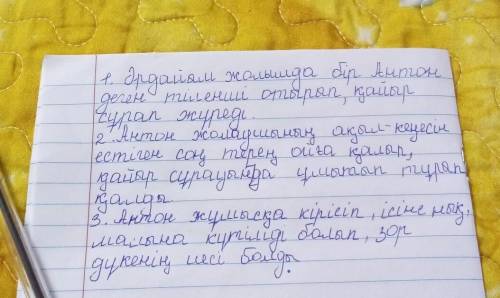 1. Әрдайым жолымда бір Антон
деген тіленші отырып, қайыр
сұрап жүреді.
2. Антон жолаушының ақыл-кеңесін
естіген соң терең ойға қалып,
қайыр сұрауында ұмытып тұрып
қалды
3. Антон жұмысқа кірісіп, ісіне нық,
малына күтімді болып, зор
дүкенің иесі болды.